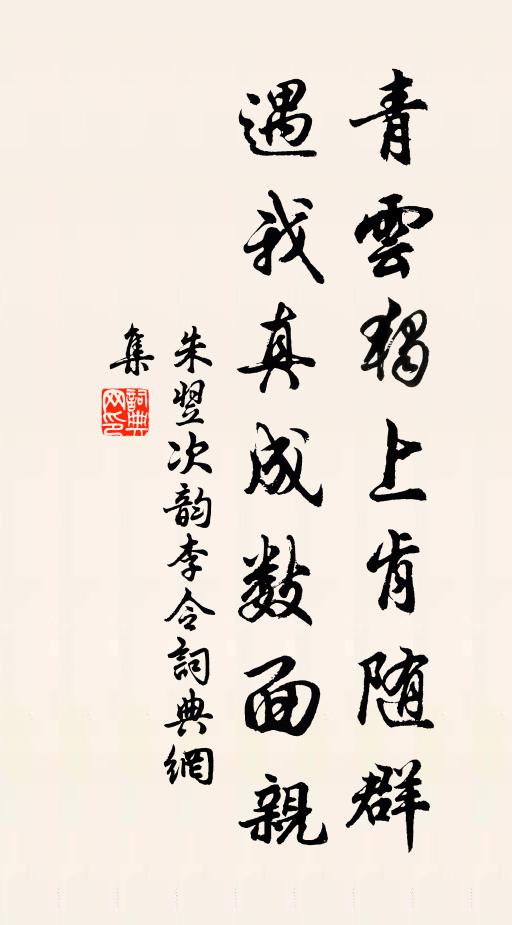 青雲獨上肯随群
遇我真成數面親
朱翌次韵李令詞典網
集
詞典
网印